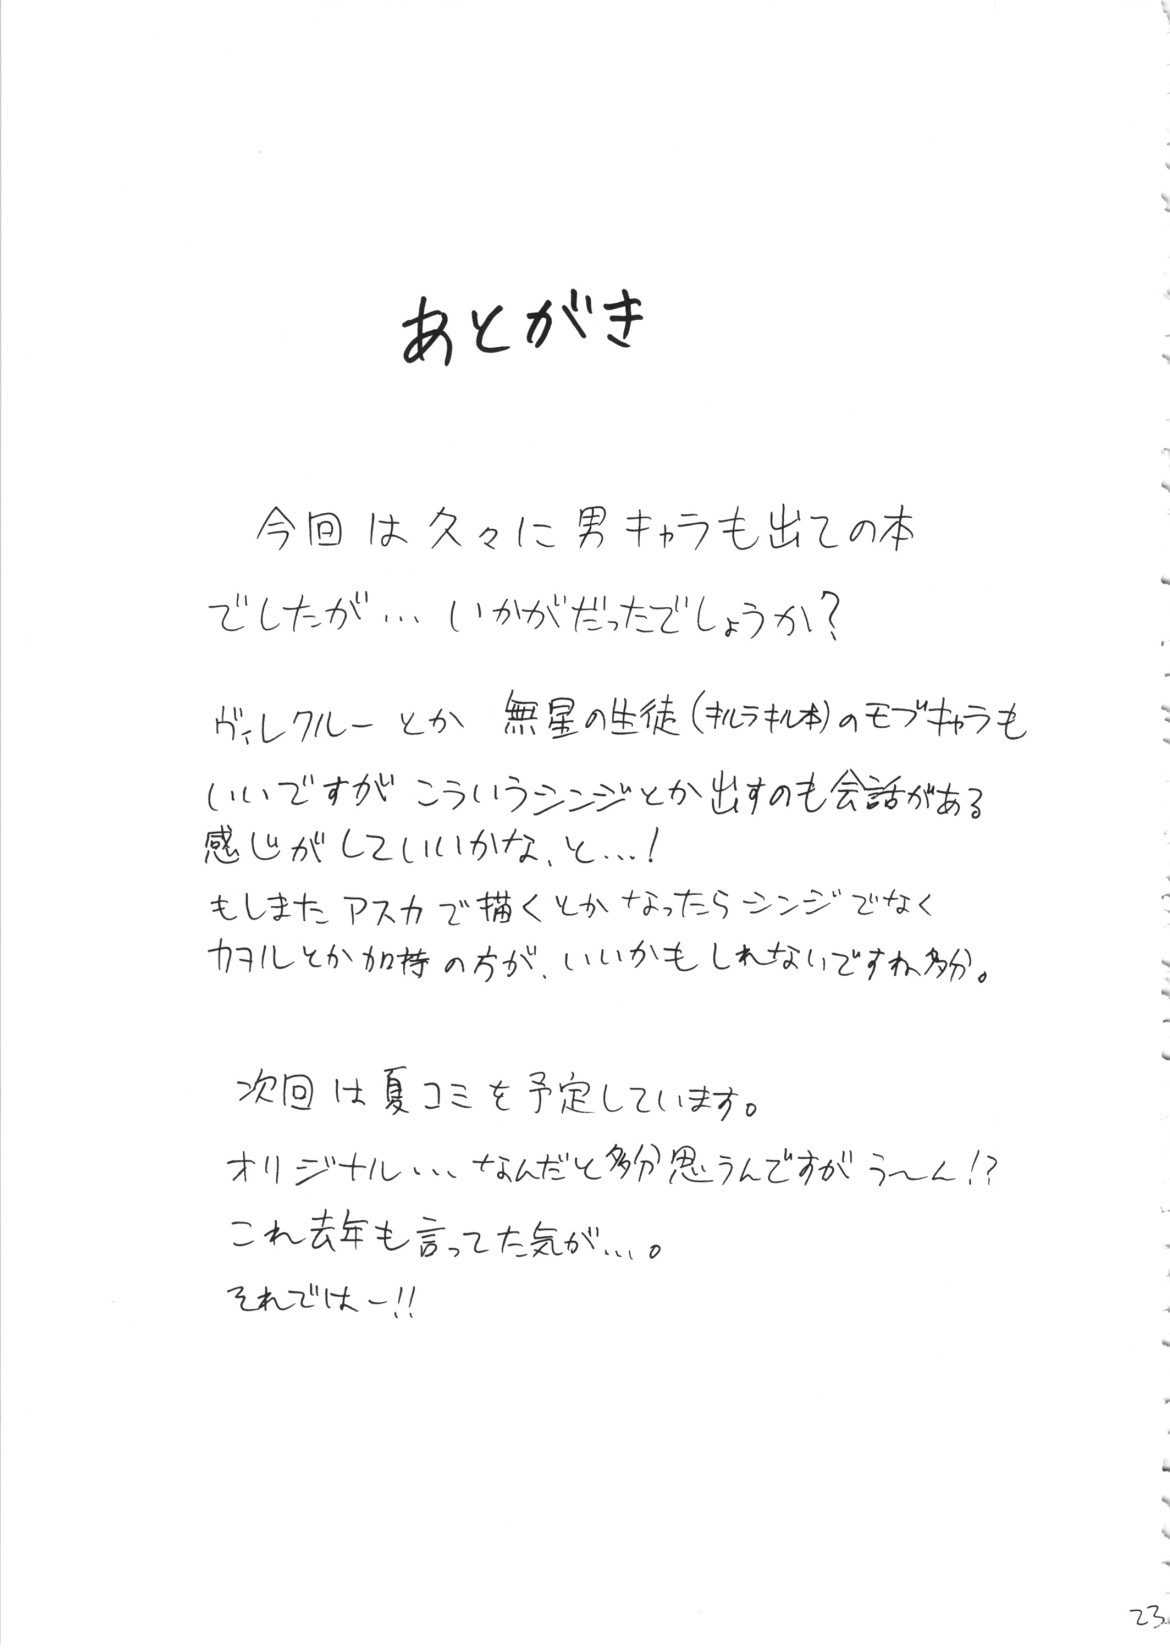 あとがき
今回は久々に男キャラも出ての本
でしたが… いかがだったでしょうか?
ヴィレクルーとか 無星の生徒(キルラキル本)のモブキャラも
いいですが こういうシンジとか出すのも会話がある
感じがしていいかな、と…!
もしまたアスカで描くとかなったらシンジでなく
カヲルとか加持の方が、いいかもしれないですね多分。
次回は夏コミを予定しています。
オリジナル…なんだと多分思うんですが う〜ん!?
これ去年も言ってた気が…。
それではー!!
23